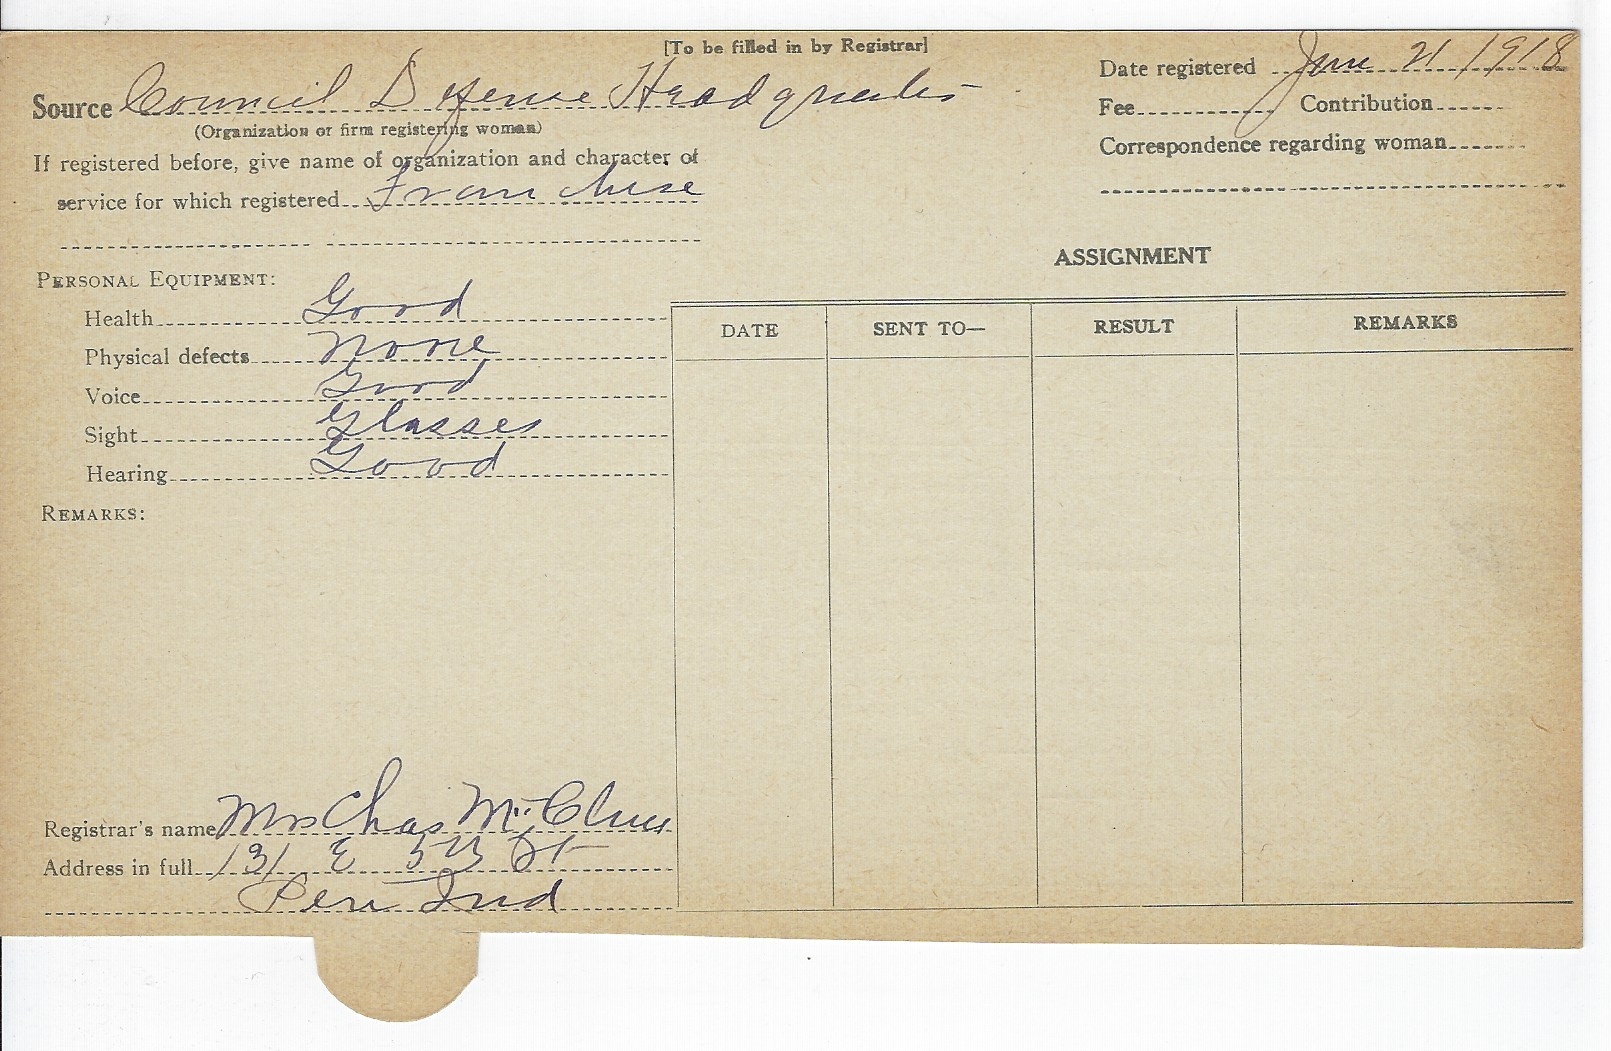 [To be filled in by Registrar]
Source Council Defense Headquarters
(Organization or firm registering woman)
If registered before, give name of organization and character of
service for which registered Franchise
Date registered June 21 1918
Fee Contribution
Correspondence regarding woman
PERSONAL EQUIPMENT:
Health Good
Physical defects None
Voice Good
Sight Glasses
Hearing Good
REMARKS:
Registrar's name Mrs Chas
Address in full 131 E 5th St
Peru Ind
ASSIGNMENT
DATE SENT TO— RESULT REMARKS